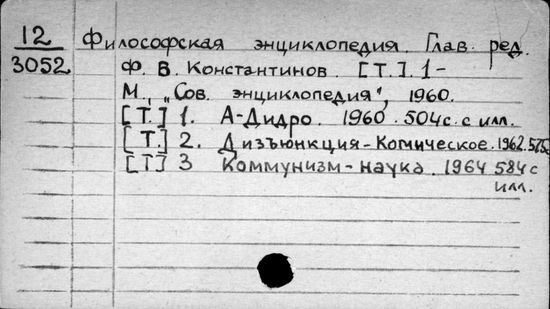 12 Философская энциклопедия. Глав. ред.
3052 Ф. В. Константинов. [Т.]. 1-
М., „Сов. энциклопедия", 1960.
[Т.] 1. А-Дидро. 1960. 504с. с илл.
[Т.] 2. Дизъюнкция-Комическое. 1962. 575с.
[Т] 3 Коммунизм-наука. 1964 584 с
илл.